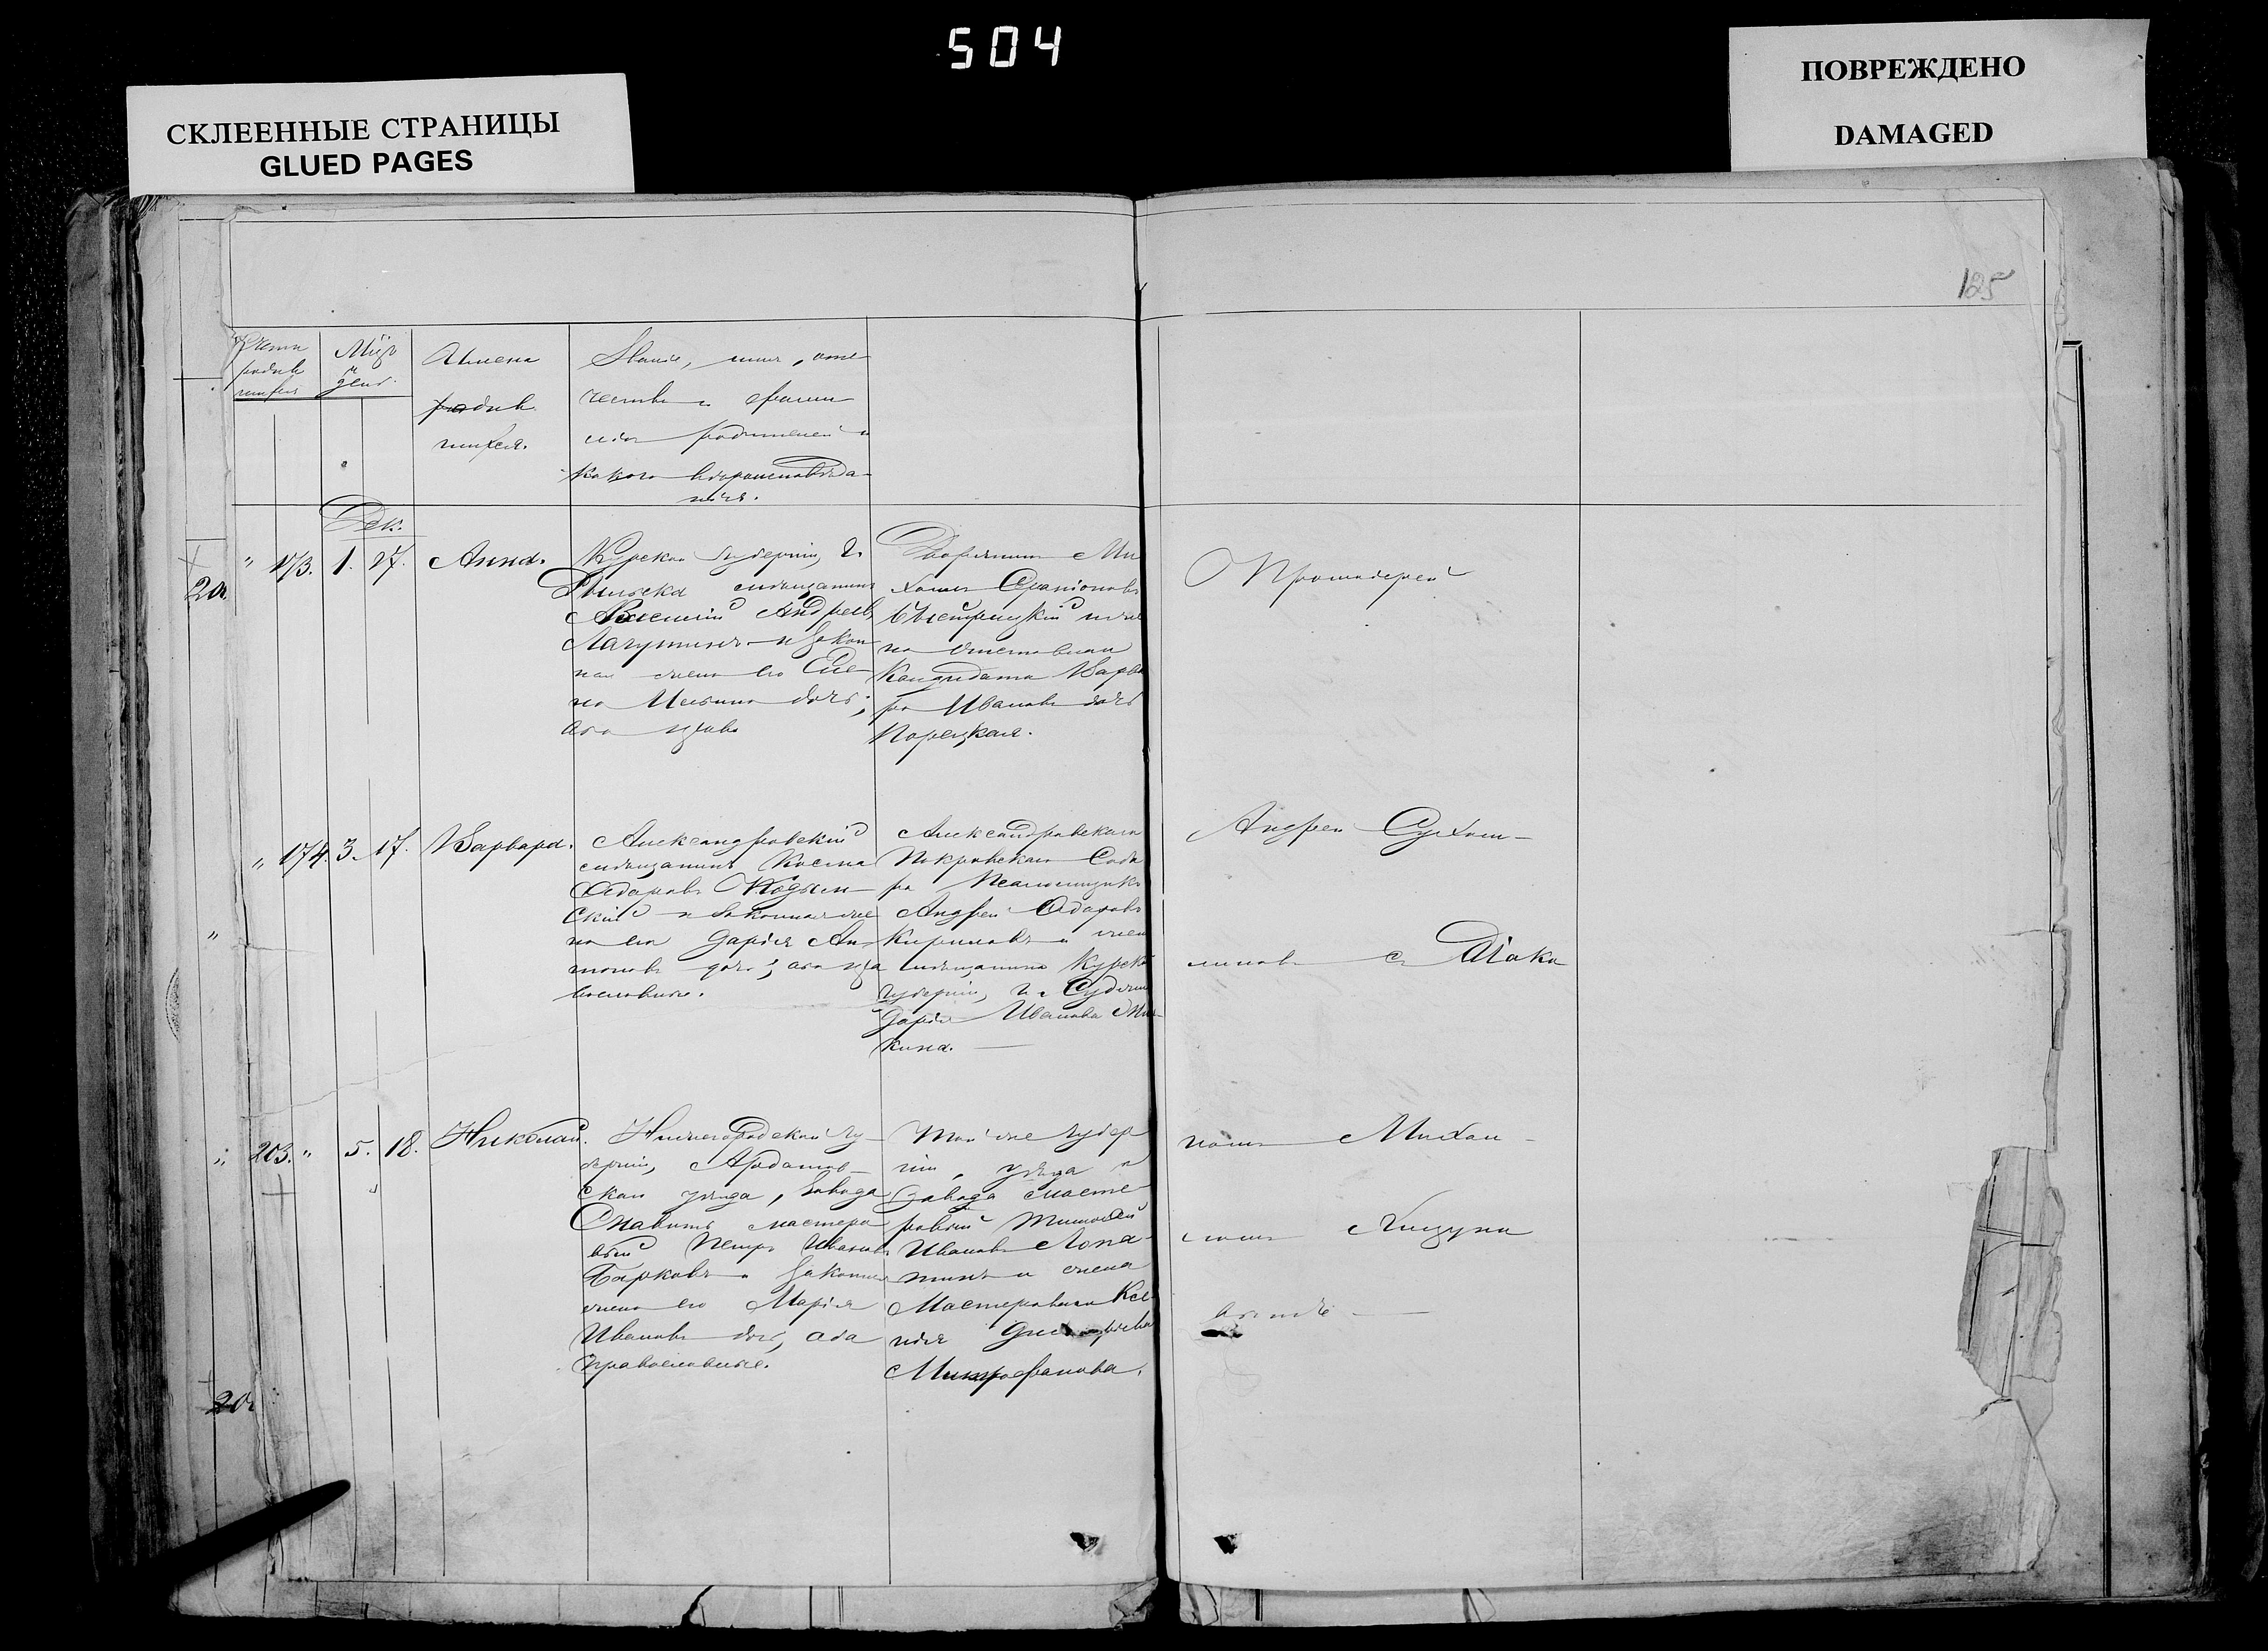 504
СКЛЕЕННЫЕ СТРАНИЦЫ
GLUED PAGES
ПОВРЕЖДЕНО
DAMAGED
125
Счетъ
родив
шихся
Мцъ
и
день.
Имена
родив
шихся.
Званіе, имя, оте
чество и фами
лія родителей и
какого вѣроисповѣда
нія.
Дек.
20.
" 173. 1. 27. Анна.
Курской губерніи, г.
Рыльска мѣщанинъ
Андреевъ
Лагутинъ и закон
ная жена его Еле
на дочь;
оба
Дворянинъ Ми
хаилъ
Быстрицкій и же
на
Кандидата Варва
ра Иванова дочь
Порецкая.
Протоіерей
" 174. 3. 17. Варвара.
Александровскій
мѣщанинъ Косма
Ѳедоровъ
скій и законная же
на его Дарія Ан
тонова дочь; оба пра
вославные.
Александровскаго
Покровскаго Собо
ра
Андрей Ѳедоровъ
Кириловъ и жена
мѣщанина Курской
губерніи, г. Суджи
Дарія Иванова
кина.
Андрей Сухом-
линовъ съ Діако
203. " 5. 18. Николай.
Нижегородской гу
берніи, Ардатов
скаго уѣзда, завода
мастеро
вый Петръ Ивановъ
Барковъ и законная
жена его Марія
Иванова дочь, оба
православные.
Той же губер
ніи, уѣзда и
завода масте
ровый Тимофей
Ивановъ Лопа
тинъ и жена
Мастероваго Ксе
нія
Митрофанова.
номъ Михаи-
ломъ
20.